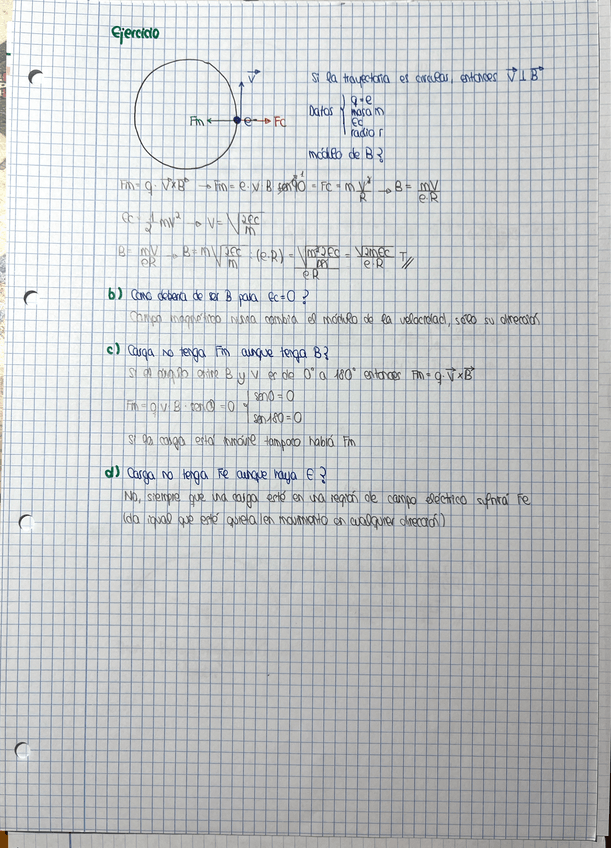 Ejercicio
V
Fm e- Fc
Si la trayectoria es circular, entonces V ⊥ B
Datos { q=e
masa m
Ec
radio r
módulo de B?
Fm = q · V×B → Fm = e · v B sen 90 = Fc = m V²/R → B = mV/eR
Ec = 1/2 mV² → V = √2Ec/m
B = mV/eR → B = m√2Ec/m : (e·R) = √m²2Ec/m / e·R = √2mEc / e·R T//
b) Como debería de ser B para Ec=0?
Campo magnético nunca cambia el módulo de la velocidad, solo su dirección
c) Carga no tenga Fm aunque tenga B?
Si el ángulo entre B y V es de 0° a 180° entonces Fm = q · V×B
Fm = q v · B · sen = 0 { sen0 = 0
sen180 = 0
Si la carga está inmóvil tampoco habrá Fm
d) Carga no tenga Fe aunque haya E?
No, siempre que una carga esté en una región de campo eléctrico sufrirá Fe
(da igual que esté quieta/en movimiento en cualquier dirección)